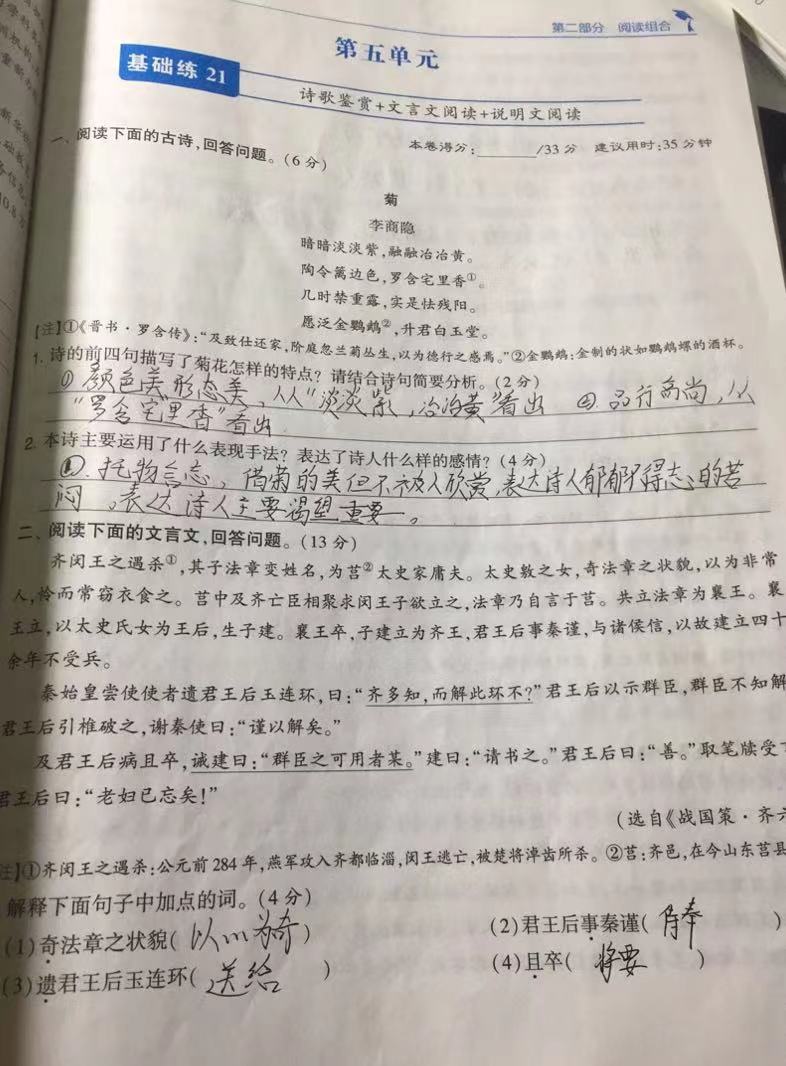 第二部分 阅读组合
第五单元
基础练 21
诗歌鉴赏+文言文阅读+说明文阅读
本卷得分:______/33分 建议用时:35分钟
一、阅读下面的古诗,回答问题。(6分)
菊
李商隐
暗暗淡淡紫,融融冶冶黄。
陶令篱边色,罗含宅里香①。
几时禁重露,实是怯残阳。
愿泛金鹦鹉②,升君白玉堂。
[注]①《晋书·罗含传》:“及致仕还家,阶庭忽兰菊丛生,以为德行之感焉。”②金鹦鹉:金制的状如鹦鹉螺的酒杯。
1. 诗的前四句描写了菊花怎样的特点?请结合诗句简要分析。(2分)
① 颜色美 形态美,从“淡淡紫,冶冶黄”看出 ②.品行高尚,从
“罗含宅里香”看出
2. 本诗主要运用了什么表现手法?表达了诗人什么样的感情?(4分)
①.托物言志,借菊的美但不被人欣赏,表达诗人郁郁不得志的苦
闷。表达诗人主要渴望重要。
二、阅读下面的文言文,回答问题。(13分)
齐闵王之遇杀①,其子法章变姓名,为莒②太史家庸夫。太史敫之女,奇法章之状貌,以为非常
人,怜而常窃衣食之。莒中及齐亡臣相聚求闵王子欲立之,法章乃自言于莒。共立法章为襄王。襄
王立,以太史氏女为王后,生子建。襄王卒,子建立为齐王,君王后事秦谨,与诸侯信,以故建立四十
余年不受兵。
秦始皇尝使使者遗君王后玉连环,曰:“齐多知,而解此环不?”君王后以示群臣,群臣不知解
君王后引椎破之,谢秦使曰:“谨以解矣。”
及君王后病且卒,诫建曰:“群臣之可用者某。”建曰:“请书之。”君王后曰:“善。”取笔牍受
君王后曰:“老妇已忘矣!”
(选自《战国策·齐
注]①齐闵王之遇杀:公元前284年,燕军攻入齐都临淄,闵王逃亡,被楚将淖齿所杀。②莒:齐邑,在今山东莒县
解释下面句子中加点的词。(4分)
(1)奇法章之状貌( 以…为奇 )
(2)君王后事秦谨( 侍奉 )
(3)遗君王后玉连环( 送给 )
(4)且卒( 将要 )